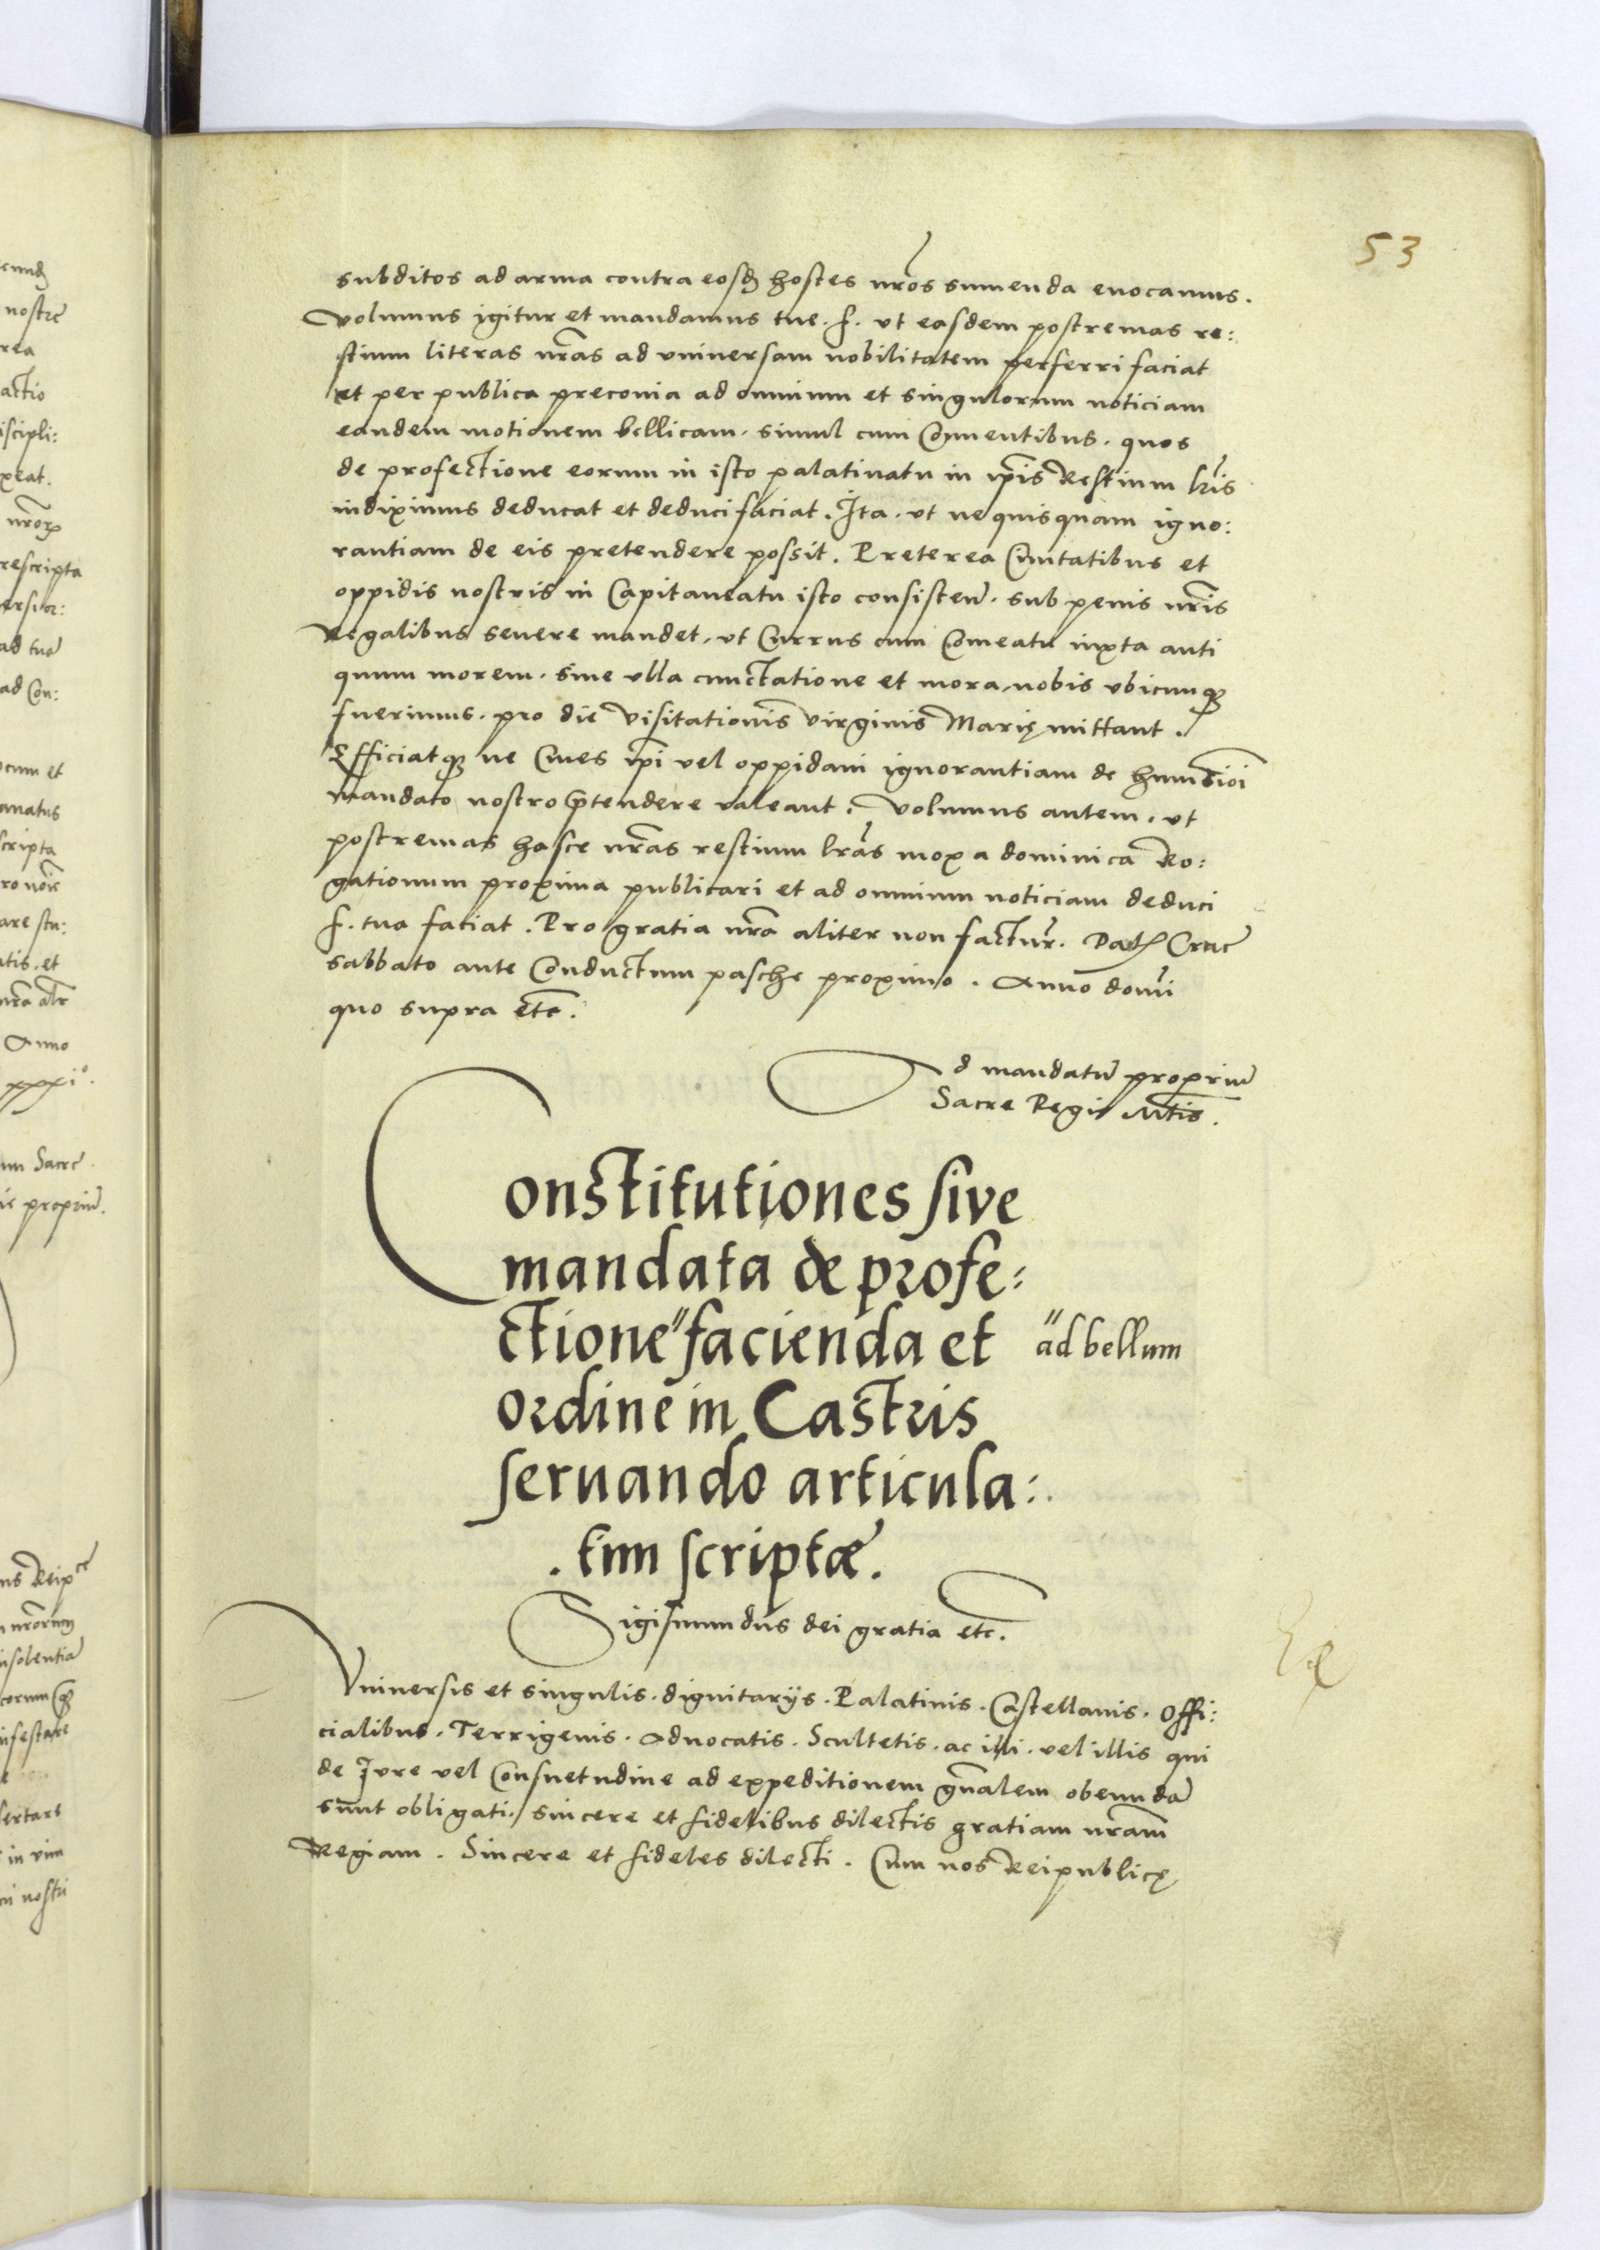 53
subditos ad arma contra eosdẽ hostes nr̃os sumenda euocamus.
Volumus igitur et mandamus tue. f. vt easdem postremas re:
stium literas nr̃as ad vniuersam nobilitatem perferri faciat
et per publica preconia ad omnium et singulorum noticiam
eandem motionem bellicam. simul cum Conuentibus. quos
de profectione eorum in isto palatinatu in ip̃is Restium lr̃is
indiximus deducat et deduci faciat. Ita. vt ne quisquam igno:
rantiam de eis pretendere possit. Preterea Ciuitatibus et
oppidis nostris in Capitaneatu isto consisteñ. sub penis nr̃is
Regalibus seuere mandet, vt Currus cum Comeatu iuxta anti
quum morem. sine vlla cunctatione et mora, nobis vbicunqȝ
fuerimus. pro die Visitationis Virginis Marię mittant.
Efficiatqȝ ne Ciues ip̃i vel oppidani ignorantiam de
mandato nostro p̃tendere valeant. Volumus autem. vt
postremas hasce nr̃as restium lr̃as mox a dominica Ro:
gationum proxima publicari et ad omnium noticiam deduci
f. tua faciat. Pro gratia nr̃a aliter non factur̃. Dat̃ Crac̃
sabbato ante Conductum pasche proximo. Anno domĩ
quo supra etc̃.
Ad mandatũ propriũ
Sacre Regie Mt̃is.
Constitutiones sive
mandata de profe:
ctione"facienda et
"ad bellum
ordine in Castris
seruando articula:
.tim scriptæ.
Sigismundus dei gratia etc.
Vniuersis et singulis. dignitarijs. Palatinis. Castellanis. Offi:
cialibus. Terrigenis. Aduocatis. Scultetis. ac illi. vel illis qui
de Jure vel Consuetudine ad expeditionem gñalem obeundã
sunt obligati, sincere et fidelibus dilectis gratiam nr̃am
Regiam. Sincere et fideles dilecti. Cum nos Reipublicę